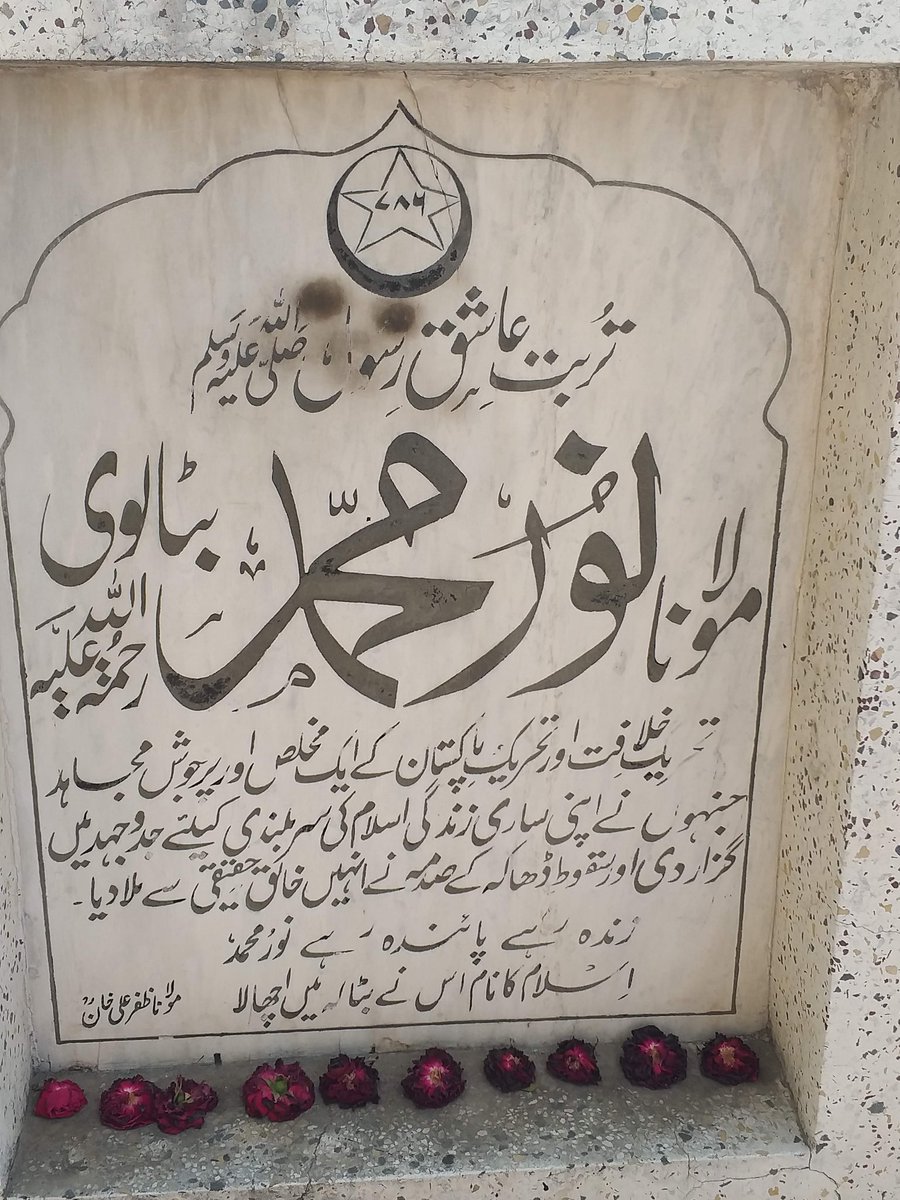 ۷۸۶
تُربت عاشقِ رسول صلی اللہ علیہ وسلم
مولانا نور محمد بٹالوی رحمۃ اللہ علیہ
تحریک خلافت اور تحریکِ پاکستان کے ایک مخلص اور پرجوش مجاہد
جنہوں نے اپنی ساری زندگی اسلام کی سر بلندی کیلئے جدوجہد میں
گزار دی اور سقوط ڈھاکہ کے صدمہ نے انہیں خالق حقیقی سے ملا دیا۔
زندہ رہے پائندہ رہے نور محمد
اسلام کا نام اس نے بٹالہ میں اچھالا
مولانا ظفر علی خانؒ